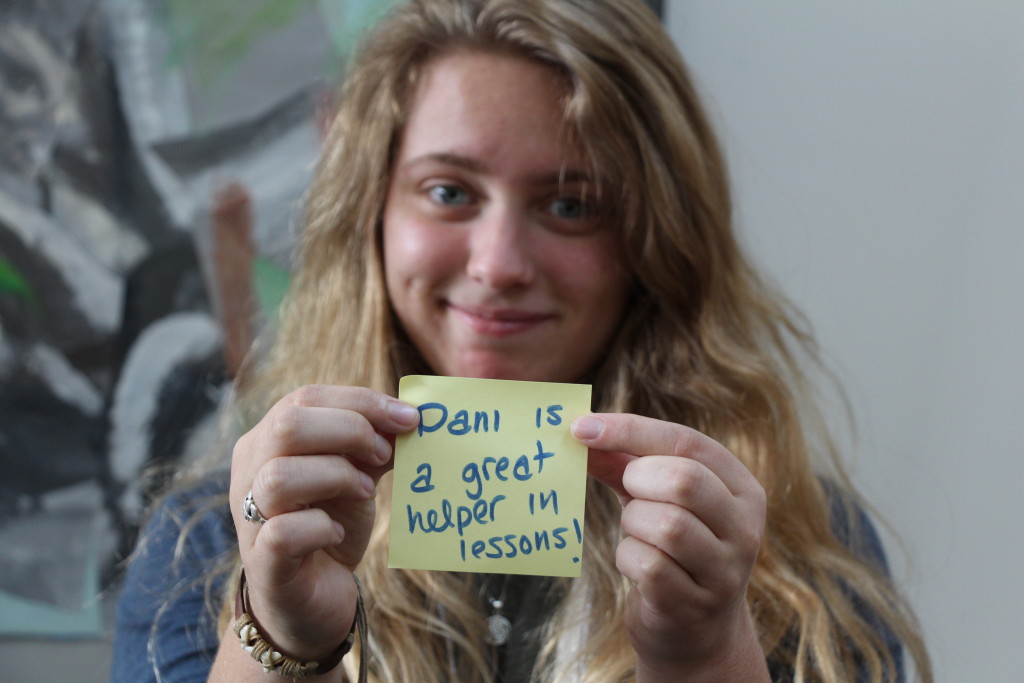 Dani is
a great
helper in
lessons!